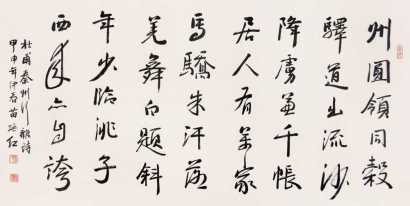 州圓領同穀
驛道出流沙
降虜兼千帳
居人有萬家
馬驕朱汗落
羌舞白題斜
年少臨洮子
西來亦自誇
杜甫秦州行雜詩
甲申年仲春苗